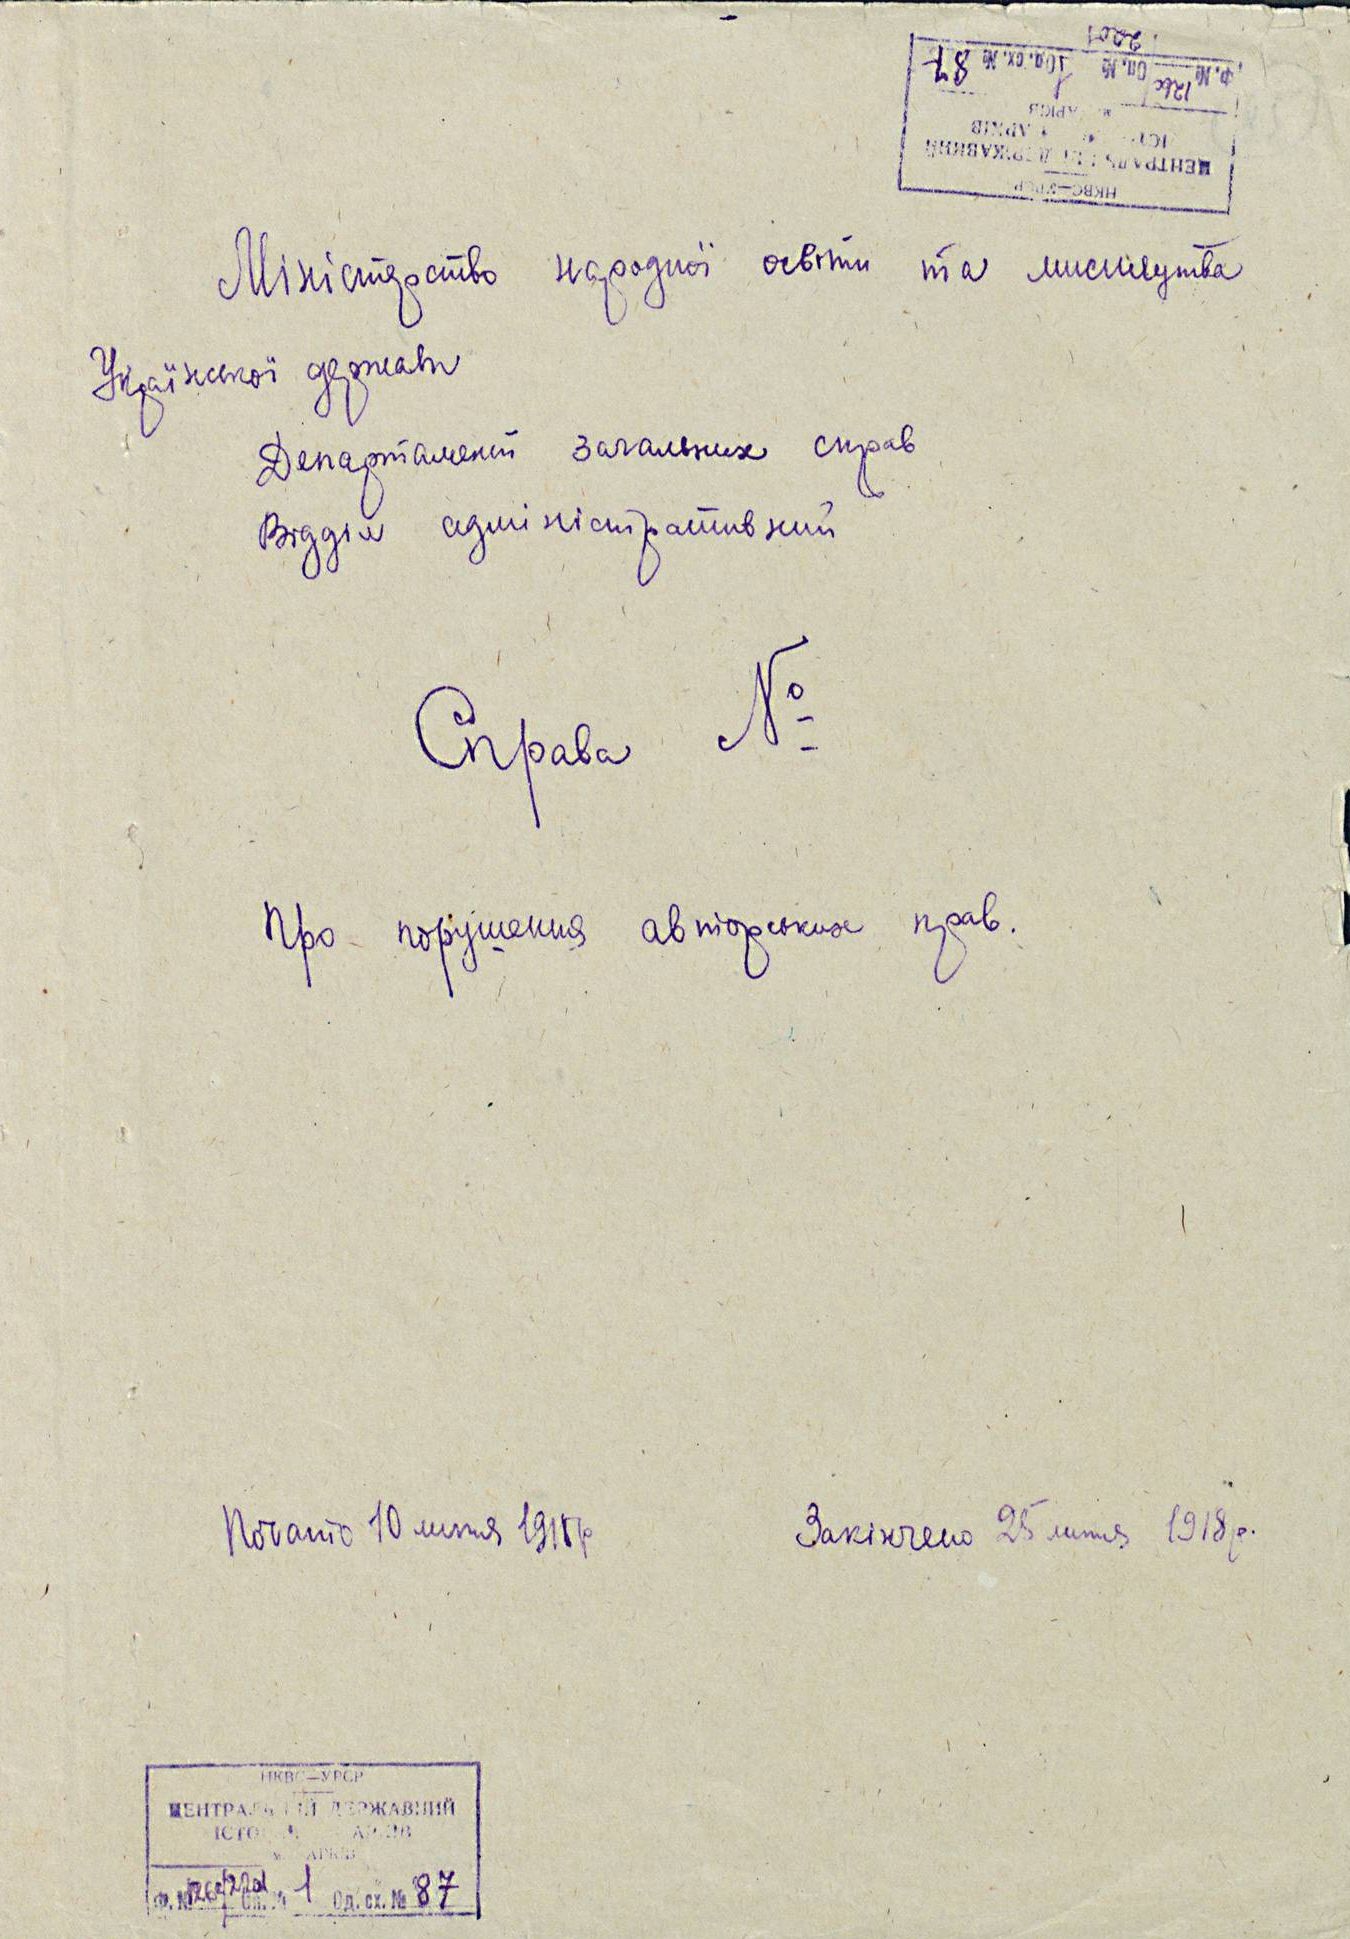 2201
Ф. № Оп. № 1 Од. сх. № 87
НКВС—УРСР
ЦЕНТРАЛЬНИЙ ДЕРЖАВНИЙ
Міністерство народної освіти та мистецтва
Української держави
Департамент загальних справ
Відділ адміністративний
Справа №
Про порушення авторських прав.
Почато 10 липня 1918 р
Закінчено 25 липня 1918 р.
НКВС—УРСР
ЦЕНТРАЛЬНИЙ ДЕРЖАВНИЙ
ІСТОРИЧНИЙ АРХІВ
Ф. № Оп. № 1 Од. сх. № 87